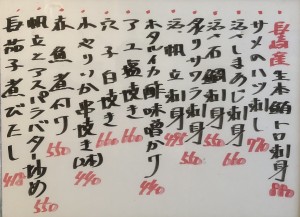 長崎産生本鮪トロ刺身 880
サメのハツ刺し 770
活〆しまあじ刺身 660
活〆石鯛刺身 550
炙りサワラ刺身 550
活〆帆立刺身 495
ホタルイカ酢味噌がけ 440
アユ塩焼き 660
穴子白焼き 660
小やりいか串焼き(2本) 440
赤魚煮付け 550
帆立とアスパラバター炒め 550
長茄子煮びたし 418